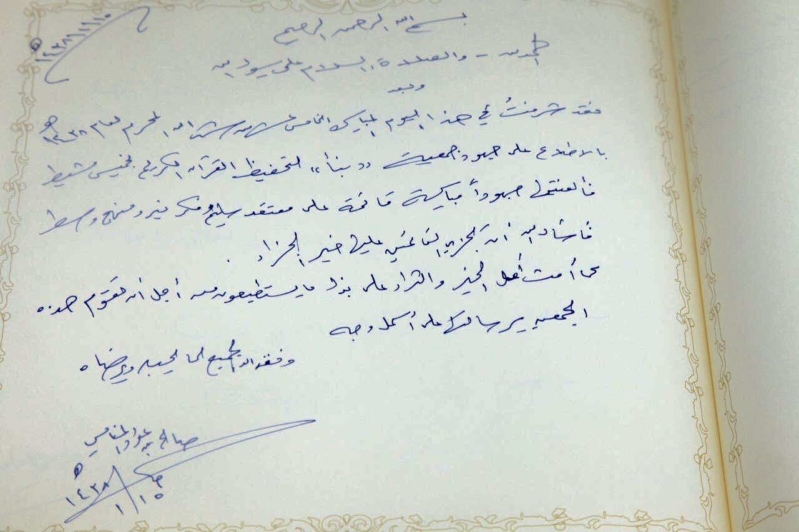 ١٤٣٨/١/١٥ هـ
بسم الله الرحمن الرحيم
الحمد لله - والصلاة والسلام على رسول الله
وبعد
فقد شرفت في هذا اليوم المبارك الخامس عشر من شهر الله المحرم لعام ١٤٣٨ هـ
بالاطلاع على جهود جمعية "نبأ" لتحفيظ القرآن الكريم بخميس مشيط
فألفيتها جهوداً مباركة قائمة على معتقد سليم وفكر نير ومنهج وسط
فأسأل الله أن يجزي القائمين عليها خير الجزاء .
كما أحث أهل الخير والثراء على بذل ما يستطيعون من أجل أن تقوم هذه
الجمعية برسالتها على أكمل وجه
وفق الله الجميع لما يحبه ويرضاه
صالح بن عواد المغامسي
١٤٣٨/١/١٥ هـ